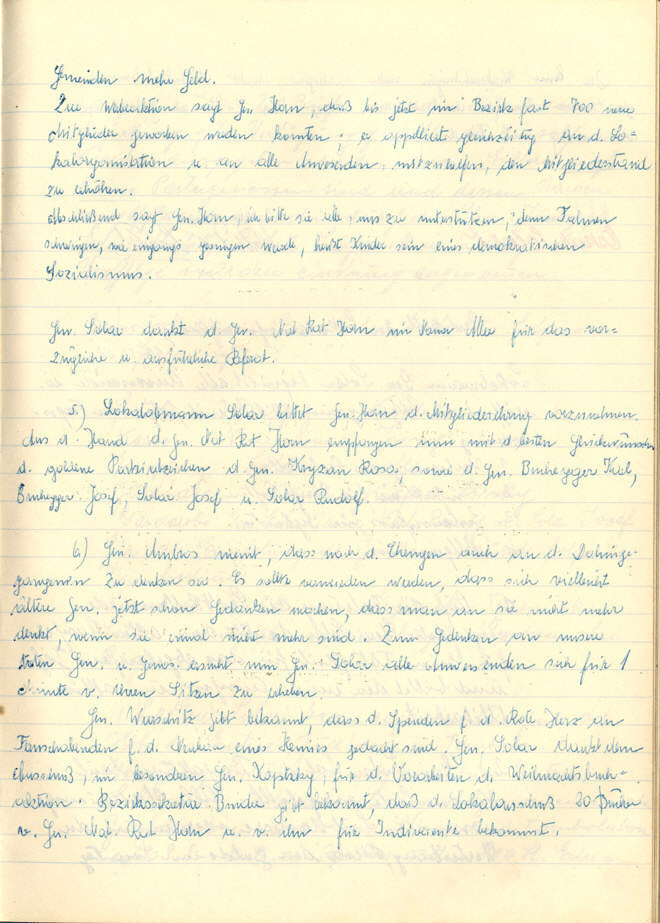 Gemeinden mehr Geld.
Zur Werbeaktion sagt Gen. Horn, daß bis jetzt im Bezirk fast 700 neue
Mitglieder geworben werden konnten; er appelliert gleichzeitig an d. Lo-
kalorganisation u. an alle Anwesenden, mitzuhelfen, den Mitgliederstand
zu erhöhen.
Abschließend sagt Gen. Horn, ich bitte sie alle, uns zu unterstützen, denn Fahnen
schwingen, wie eingangs gesungen wurde, heißt Kinder sein eines demokratischen
Sozialismus.
Gen. Solar dankt d. Gen. Nat Rat Horn im Namen Aller für das vor-
zügliche u. ausführliche Referat.
5.) Lokalobmann Solar bittet Gen. Horn d. Mitgliederehrung vorzunehmen.
Aus d. Hand d. Gen. Nat Rat Horn empfingen nun mit d. besten Glückwünschen
d. goldene Parteiabzeichen d. Gen. Rosa, sowie d. Gen. Karl,
Josef, Solar Josef u. Solar Rudolf.
6) Gen. Ambros meint, dass nach d. Ehrungen auch an d. Dahinge-
gangenen zu denken sei. Es sollte vermieden werden, dass sich vielleicht
ältere Gen. jetzt schon Gedanken machen, dass man an sie nicht mehr
denkt, wenn sie einmal nicht mehr sind. Zum Gedenken an unsere
toten Gen. u. Genos. ersucht nun Gen. Solar alle Anwesenden sich für 1
Minute v. ihren Sitzen zu erheben.
Gen. gibt bekannt, dass d. Spenden f. d. Rote Herz an
f. d. Ankauf eines Heimes gedacht sind. Gen. Solar dankt dem
Ausschuß, im besonderen Gen. für d. Vorarbeiten d. Weihnachtsbuch-
aktion. Bezirkssekretär gibt bekannt, daß d. Lokalausschuß 20 Bücher
v. Gen. Nat. Rat Horn u. v. ihm für bekommt.